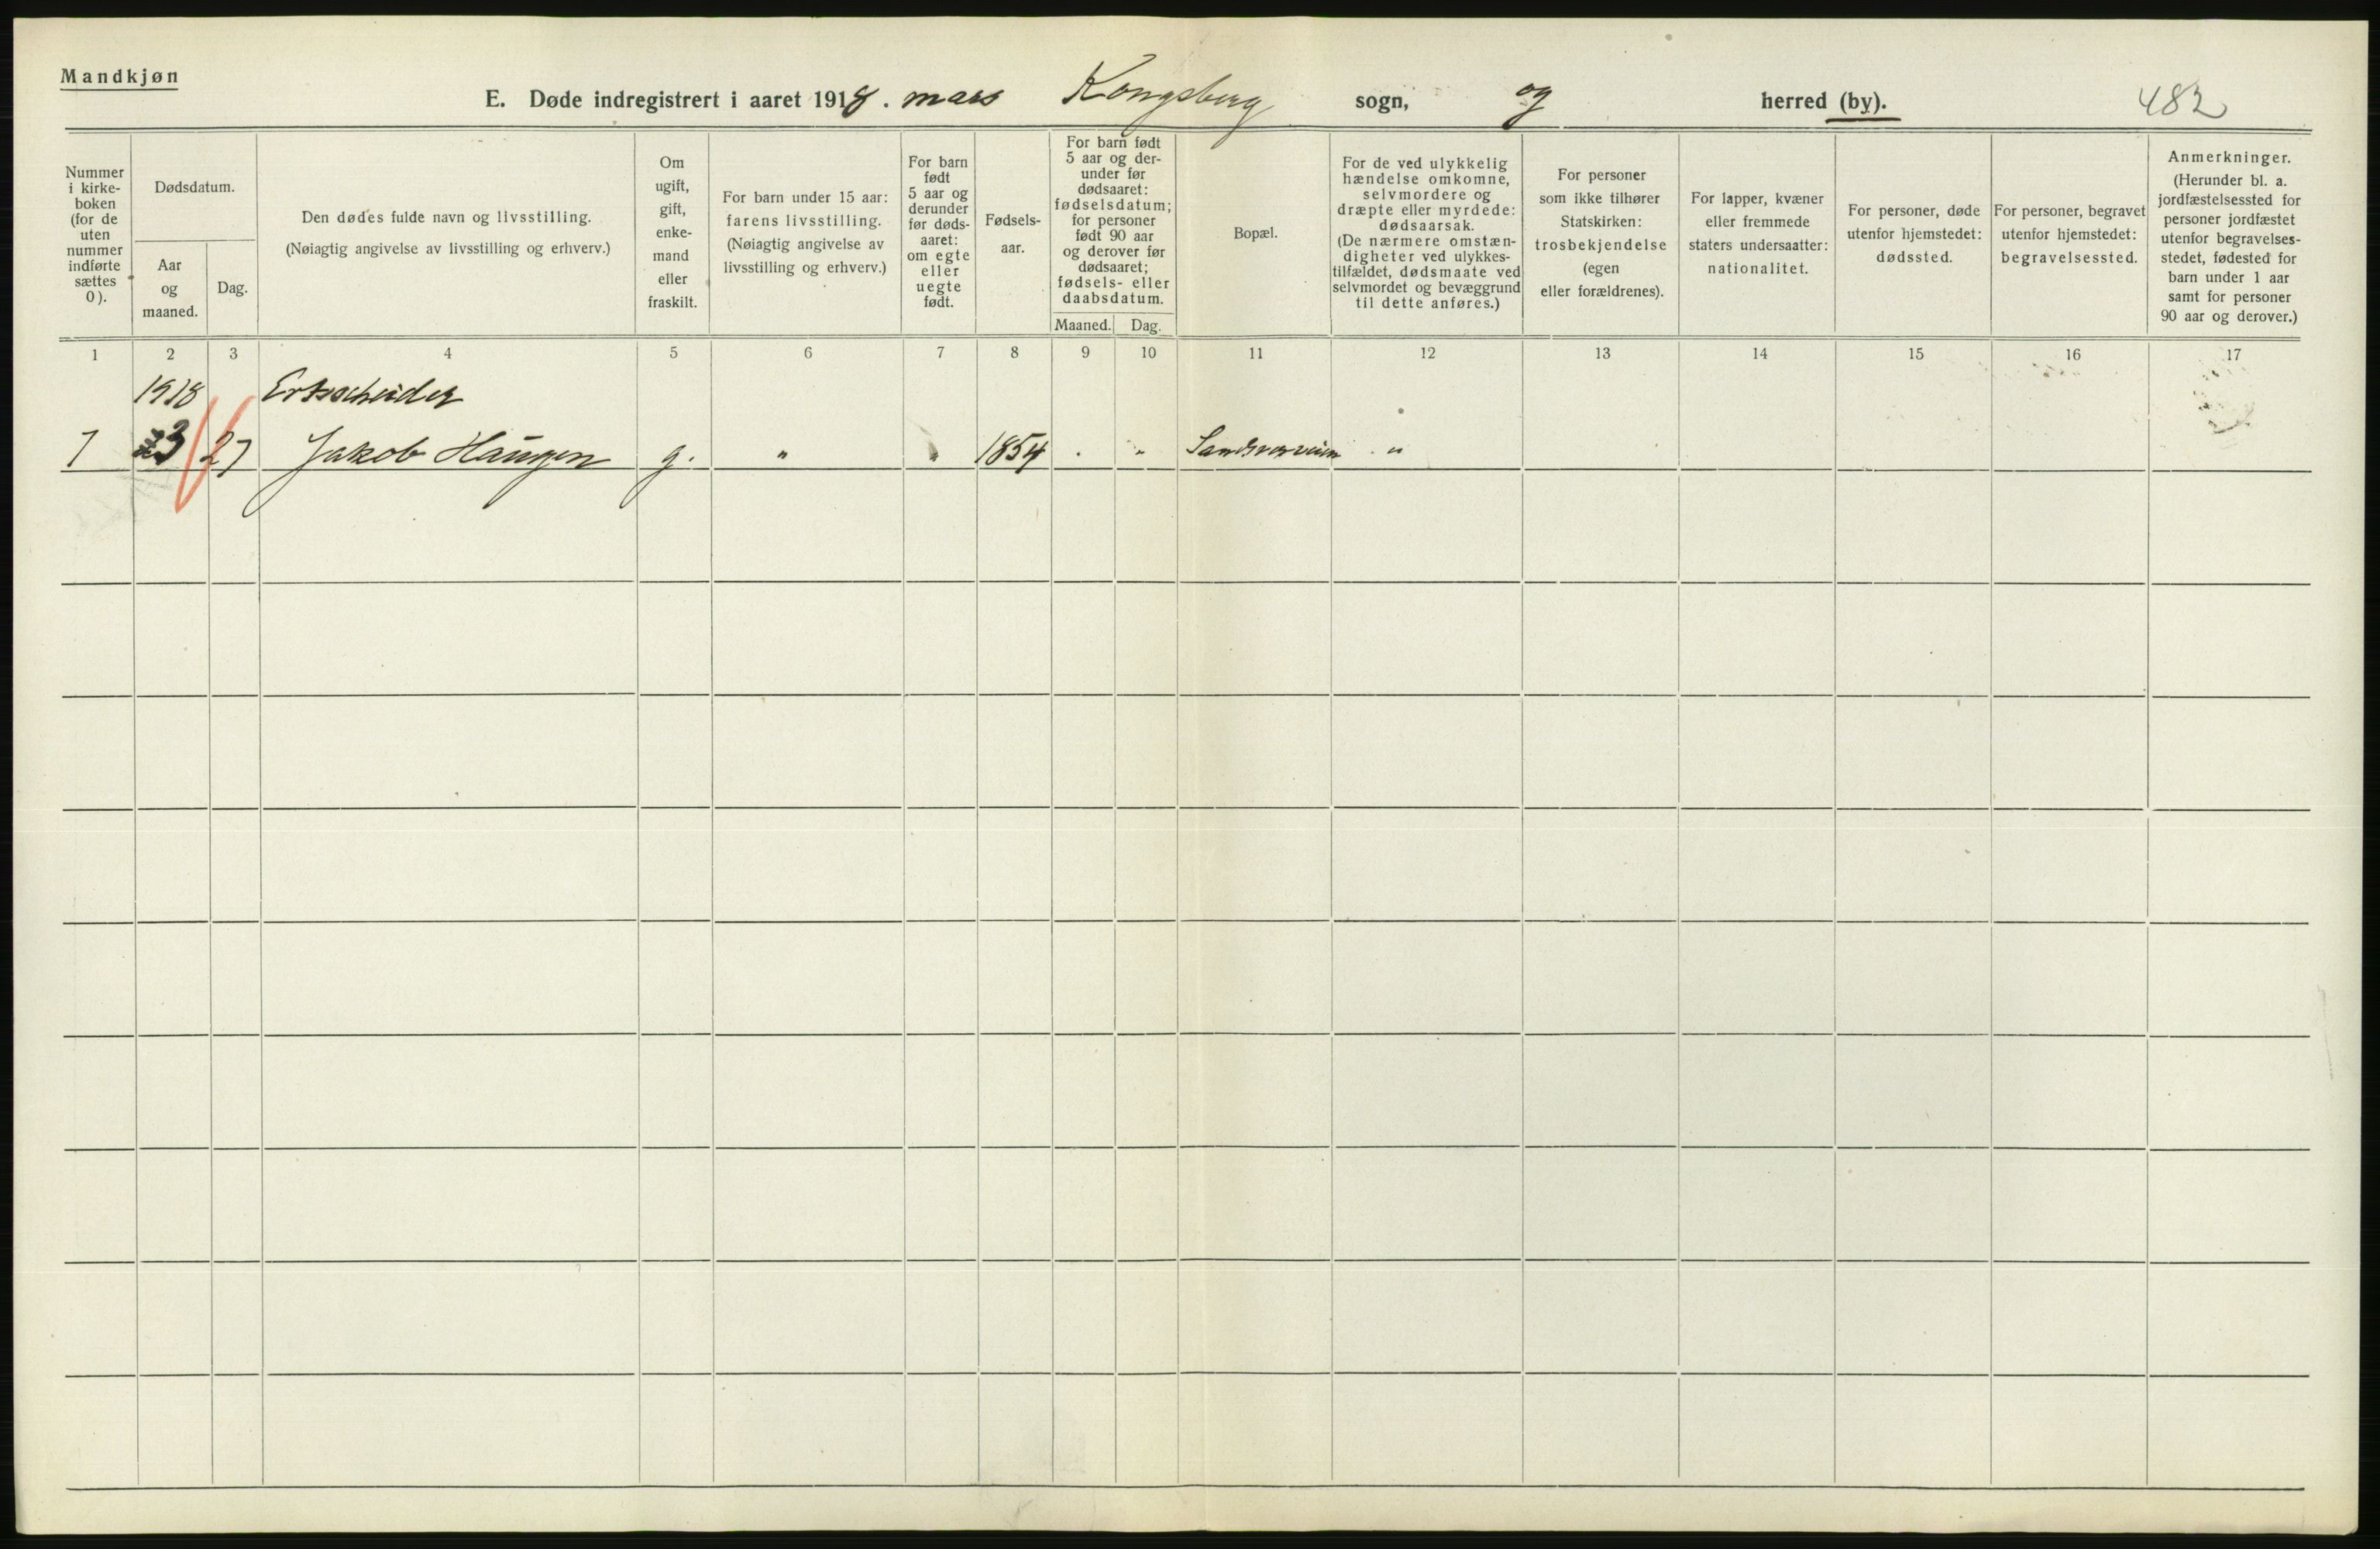 Mandkjøn
E. Døde indregistrert i aaret 1918. mars Kongsberg sogn, og herred (by). 482
Nummer
i kirke-
boken
(for de
uten
nummer
indførte
sættes
0).
Dødsdatum.
Aar
og
maaned.
Dag.
Den dødes fulde navn og livsstilling.
(Nøiagtig angivelse av livsstilling og erhverv.)
Om
ugift,
gift,
enke-
mand
eller
fraskilt.
For barn under 15 aar:
farens livsstilling.
(Nøiagtig angivelse av
livsstilling og erhverv.)
For barn
født
5 aar og
derunder
før døds-
aaret:
om egte
eller
uegte
født.
Fødsels-
aar.
For barn født
5 aar og der-
under før
dødsaaret:
fødselsdatum;
for personer
født 90 aar
og derover før
dødsaaret;
fødsels- eller
daabsdatum.
Maaned. Dag.
Bopæl.
For de ved ulykkelig
hændelse omkomne,
selvmordere og
dræpte eller myrdede:
dødsaarsak.
(De nærmere omstæn-
digheter ved ulykkes-
tilfældet, dødsmaate ved
selvmordet og bevæggrund
til dette anføres.)
For personer
som ikke tilhører
Statskirken:
trosbekjendelse
(egen
eller forældrenes).
For lapper, kvæner
eller fremmede
staters undersaatter:
nationalitet.
For personer, døde
utenfor hjemstedet:
dødssted.
For personer, begravet
utenfor hjemstedet:
begravelsessted.
Anmerkninger.
(Herunder bl. a.
jordfæstelsessted for
personer jordfæstet
utenfor begravelses-
stedet, fødested for
barn under 1 aar
samt for personer
90 aar og derover.)
1 2 3 4 5 6 7 8 9 10 11 12 13 14 15 16 17
1918 Ertsscheider
7 3 27 Jakob Haugen g. " " 1854 " " "